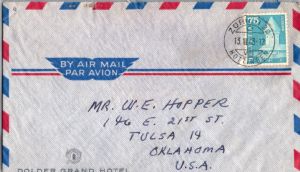 BY AIR MAIL
PAR AVION
MR. W. E. HOPPER
146 E. 21ST ST
TULSA 14
OKLAHOMA
U.S.A.
DOLDER GRAND HOTEL